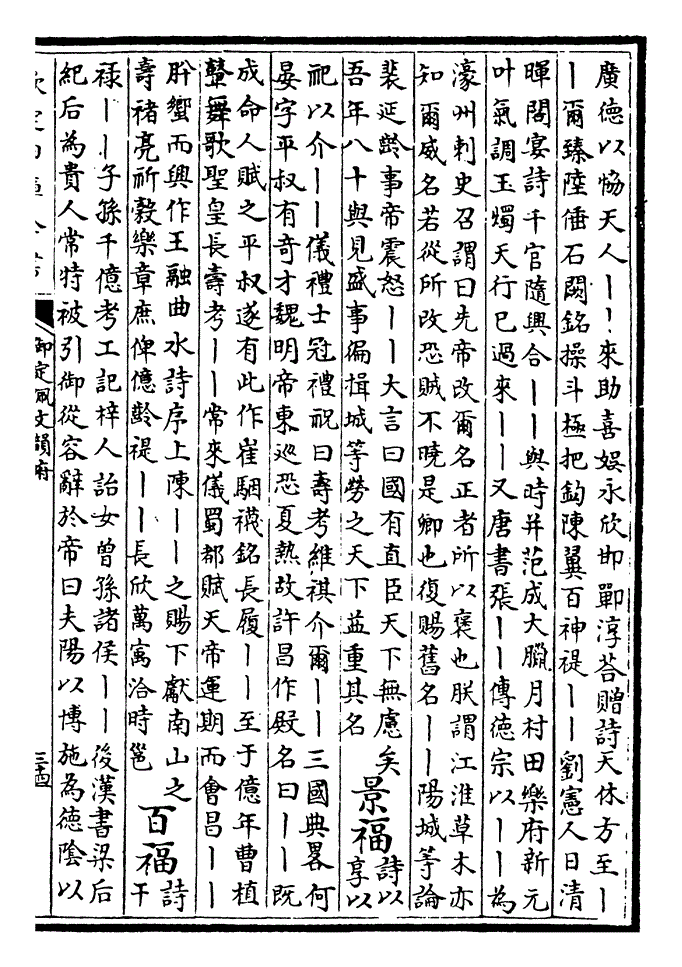 廣德以恊天人｜｜來助喜娛永欣邯鄲淳荅贈詩天休方至｜
｜爾臻陸倕石闕銘操斗極把鈎陳翼百神禔｜｜劉憲人日清
暉閣宴詩千官隨興合｜｜與時并范成大臘月村田樂府新元
叶氣調玉燭天行巳過來｜｜又唐書張｜｜傳德宗以｜｜為
濠州刺史召謂曰先帝改爾名正者所以褒也朕謂江淮草木亦
知爾威名若從所改恐賊不曉是卿也復賜舊名｜｜陽城等論
裴延齡事帝震怒｜｜大言曰國有直臣天下無慮矣
吾年八十與見盛事徧揖城等勞之天下益重其名
景福
詩以
享以
祀以介｜｜儀禮士冠禮祝曰壽考維祺介爾｜｜三國典畧何
晏字平叔有奇才魏明帝東巡恐夏熱故許昌作殿名曰｜｜既
成命人賦之平叔遂有此作崔駰襪銘長履｜｜至于億年曹植
鼙舞歌聖皇長壽考｜｜常來儀蜀都賦天帝運期而會昌｜｜
肸蠁而興作王融曲水詩序上陳｜｜之賜下獻南山之
壽褚亮祈穀樂章庶俾億齡禔｜｜長欣萬㝢洽時邕
百福
詩
干
禄｜｜子孫千億考工記梓人詒女曾孫諸侯｜｜後漢書梁后
紀后為貴人常特被引御從容辭於帝曰夫陽以博施為德陰以
欽定四庫全書
御定佩文韻府
三十四